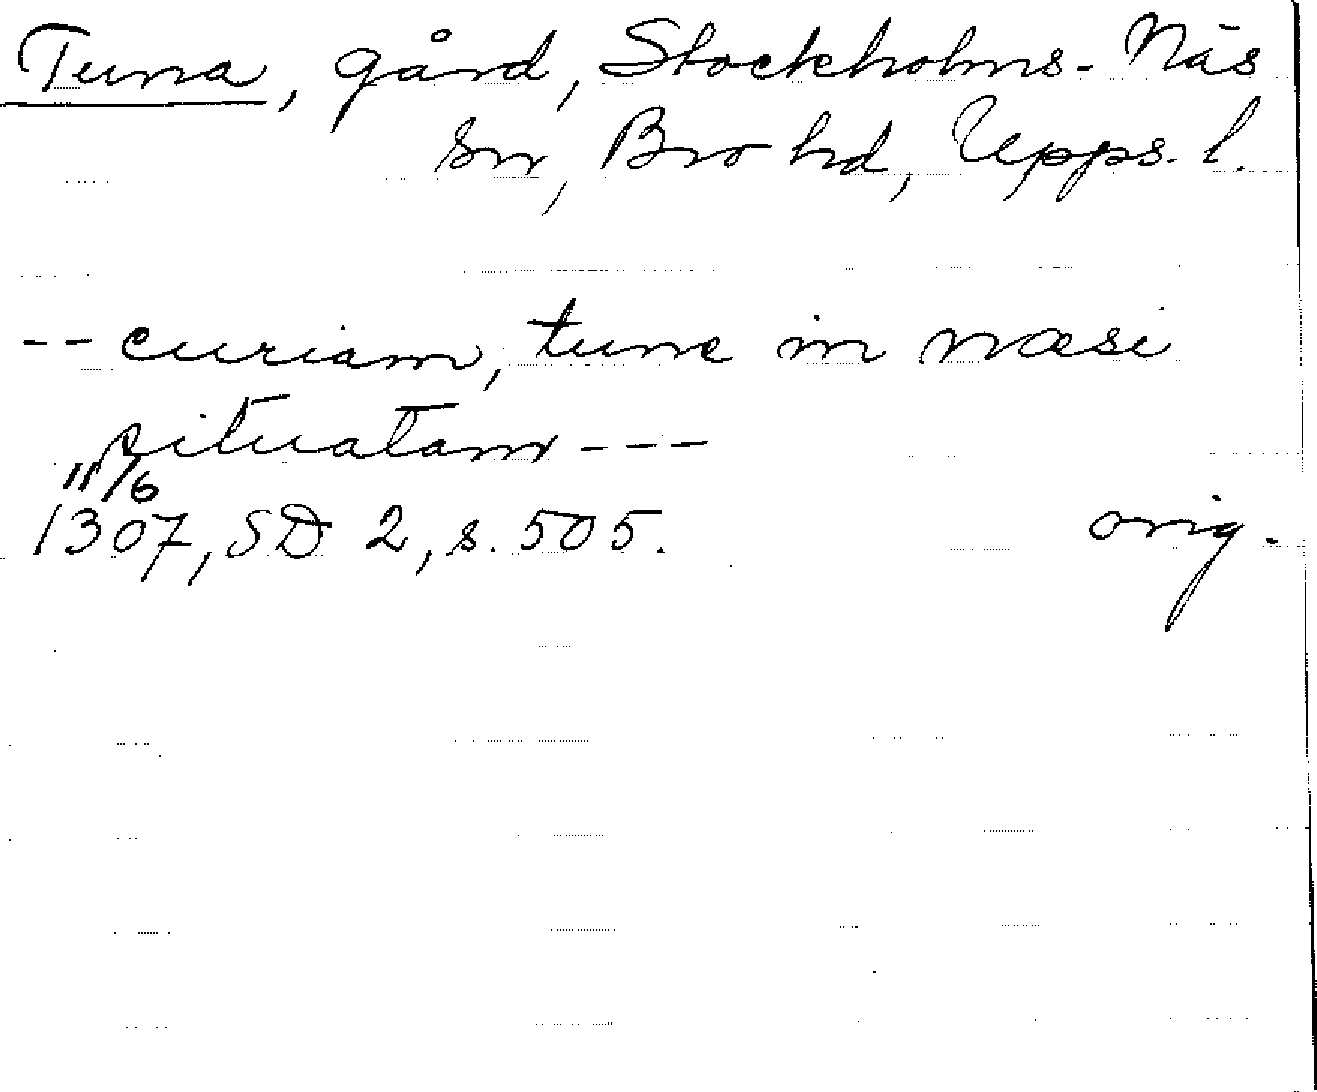 Tuna, gård, Stockholms-Näs
sn, Bro hd, Upps. l.
-- curiam, tune in næsi
situatam ---
11/6
1307, SD 2, s. 505. orig.